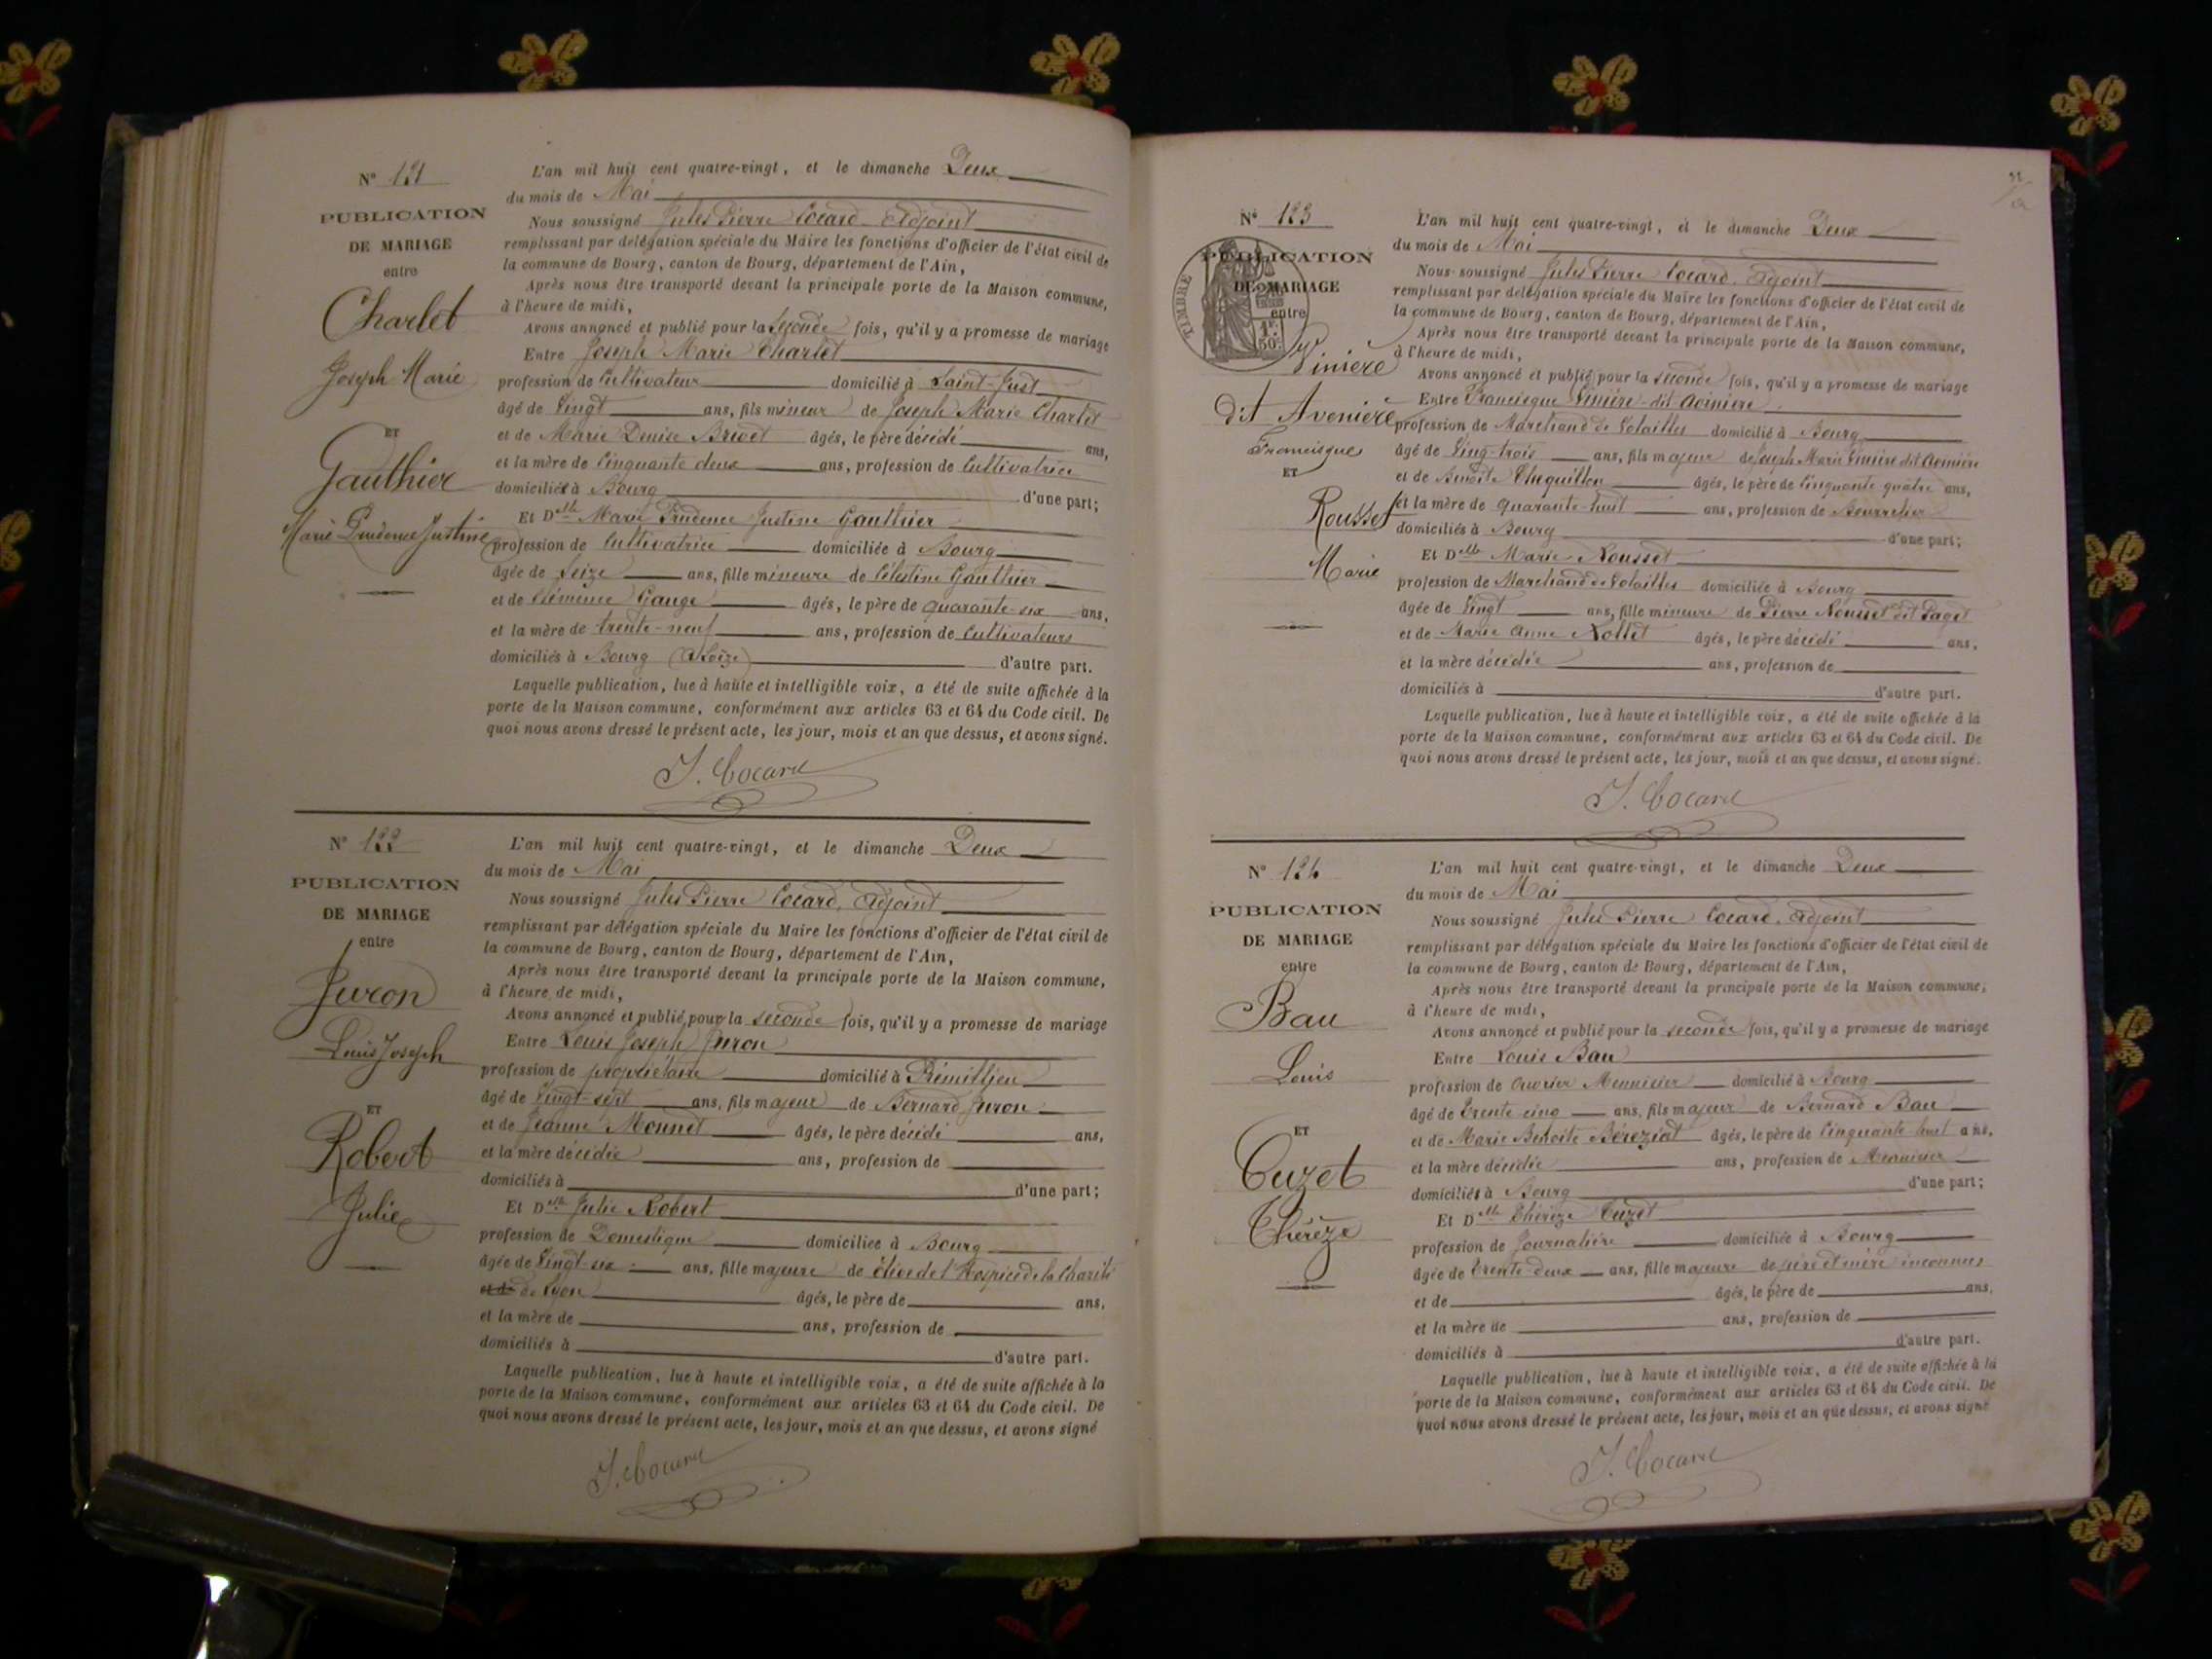 N° 121
PUBLICATION
DE MARIAGE
entre
Charlet
Joseph Marie
ET
Gauthier
Marie Prudence Justine
L'an mil huit cent quatre-vingt, et le dimanche Deux
du mois de Mai
Nous soussigné Jules Pierre Cocard Adjoint
remplissant par délégation spéciale du Maire les fonctions d'officier de l'état civil de
la commune de Bourg, canton de Bourg, département de l'Ain,
Après nous être transporté devant la principale porte de la Maison commune,
à l'heure de midi,
Avons annoncé et publié pour la seconde fois, qu'il y a promesse de mariage
Entre Joseph Marie Charlet
profession de Cultivateur domicilié à Saint-Just
âgé de Vingt ans, fils mineur de Joseph Marie Charlet
et de Marie Denise Brevet âgés, le père décédé ans,
et la mère de Cinquante deux ans, profession de Cultivatrice
domiciliés à Bourg d'une part;
Et Delle Marie Prudence Justine Gauthier
profession de Cultivatrice domiciliée à Bourg
âgée de Seize ans, fille mineure de Célestine Gauthier
et de Clémence Gauge âgés, le père de quarante-six ans,
et la mère de trente-neuf ans, profession de Cultivateurs
domiciliés à Bourg d'autre part.
Laquelle publication, lue à haute et intelligible voix, a été de suite affichée à la
porte de la Maison commune, conformément aux articles 63 et 64 du Code civil. De
quoi nous avons dressé le présent acte, les jour, mois et an que dessus, et avons signé.
J. Cocard
N° 122
PUBLICATION
DE MARIAGE
entre
Juron
Louis Joseph
ET
Robert
Julie
L'an mil huit cent quatre-vingt, et le dimanche Deux
du mois de Mai
Nous soussigné Jules Pierre Cocard, Adjoint
remplissant par délégation spéciale du Maire les fonctions d'officier de l'état civil de
la commune de Bourg, canton de Bourg, département de l'Ain,
Après nous être transporté devant la principale porte de la Maison commune,
à l'heure de midi,
Avons annoncé et publié pour la seconde fois, qu'il y a promesse de mariage
Entre Louis Joseph Juron
profession de propriétaire domicilié à Prémillieu
âgé de Vingt-sept ans, fils majeur de Bernard Juron
et de Jeanne Monnet âgés, le père décédé ans,
et la mère décédée ans, profession de
domiciliés à d'une part;
Et Delle Julie Robert
profession de Domestique domiciliée à Bourg
âgée de Vingt-six ans, fille majeure de élève de l'Hospice de la Charité
et de de Lyon âgés, le père de ans,
et la mère de ans, profession de
domiciliés à d'autre part.
Laquelle publication, lue à haute et intelligible voix, a été de suite affichée à la
porte de la Maison commune, conformément aux articles 63 et 64 du Code civil. De
quoi nous avons dressé le présent acte, les jour, mois et an que dessus, et avons signé
J. Cocard
N° 123
PUBLICATION
DE MARIAGE
entre
TIMBRE
1F
50C
Vinière
dit Avenière
Francisque
ET
Rousset
Marie
L'an mil huit cent quatre-vingt, et le dimanche Deux
du mois de Mai
Nous soussigné Jules Pierre Cocard, Adjoint
remplissant par délégation spéciale du Maire les fonctions d'officier de l'état civil de
la commune de Bourg, canton de Bourg, département de l'Ain,
Après nous être transporté devant la principale porte de la Maison commune,
à l'heure de midi,
Avons annoncé et publié pour la seconde fois, qu'il y a promesse de mariage
Entre Francisque Vinière dit Avinière
profession de Marchand de Volailles domicilié à Bourg
âgé de Vingt-trois ans, fils majeur de Joseph Marie Vinière dit Avinière
et de Benoîte Chequillon âgés, le père de Cinquante quatre ans,
et la mère de quarante-huit ans, profession de Bourrelier
domiciliés à Bourg d'une part;
Et Delle Marie Rousset
profession de Marchand de Volailles domiciliée à Bourg
âgée de Vingt ans, fille mineure de Pierre Rousset dit Paget
et de Marie Anne Nollet âgés, le père décédé ans,
et la mère décédée ans, profession de
domiciliés à d'autre part.
Laquelle publication, lue à haute et intelligible voix, a été de suite affichée à la
porte de la Maison commune, conformément aux articles 63 et 64 du Code civil. De
quoi nous avons dressé le présent acte, les jour, mois et an que dessus, et avons signé.
J. Cocard
N° 124
PUBLICATION
DE MARIAGE
entre
Bau
Louis
ET
Cuzet
Thérèze
L'an mil huit cent quatre-vingt, et le dimanche Deux
du mois de Mai
Nous soussigné Jules Pierre Cocard, Adjoint
remplissant par délégation spéciale du Maire les fonctions d'officier de l'état civil de
la commune de Bourg, canton de Bourg, département de l'Ain,
Après nous être transporté devant la principale porte de la Maison commune,
à l'heure de midi,
Avons annoncé et publié pour la seconde fois, qu'il y a promesse de mariage
Entre Louis Bau
profession de Ouvrier Menuisier domicilié à Bourg
âgé de Trente cinq ans, fils majeur de Bernard Bau
et de Marie Benoite Béreziat âgés, le père de Cinquante huit ans,
et la mère décédée ans, profession de Menuisier
domiciliés à Bourg d'une part;
Et Delle Thérèze Cuzet
profession de Journalière domiciliée à Bourg
âgée de Trente-deux ans, fille majeure de père et mère inconnus
et de âgés, le père de ans,
et la mère de ans, profession de
domiciliés à d'autre part.
Laquelle publication, lue à haute et intelligible voix, a été de suite affichée à la
porte de la Maison commune, conformément aux articles 63 et 64 du Code civil. De
quoi nous avons dressé le présent acte, les jour, mois et an que dessus, et avons signé
J. Cocard